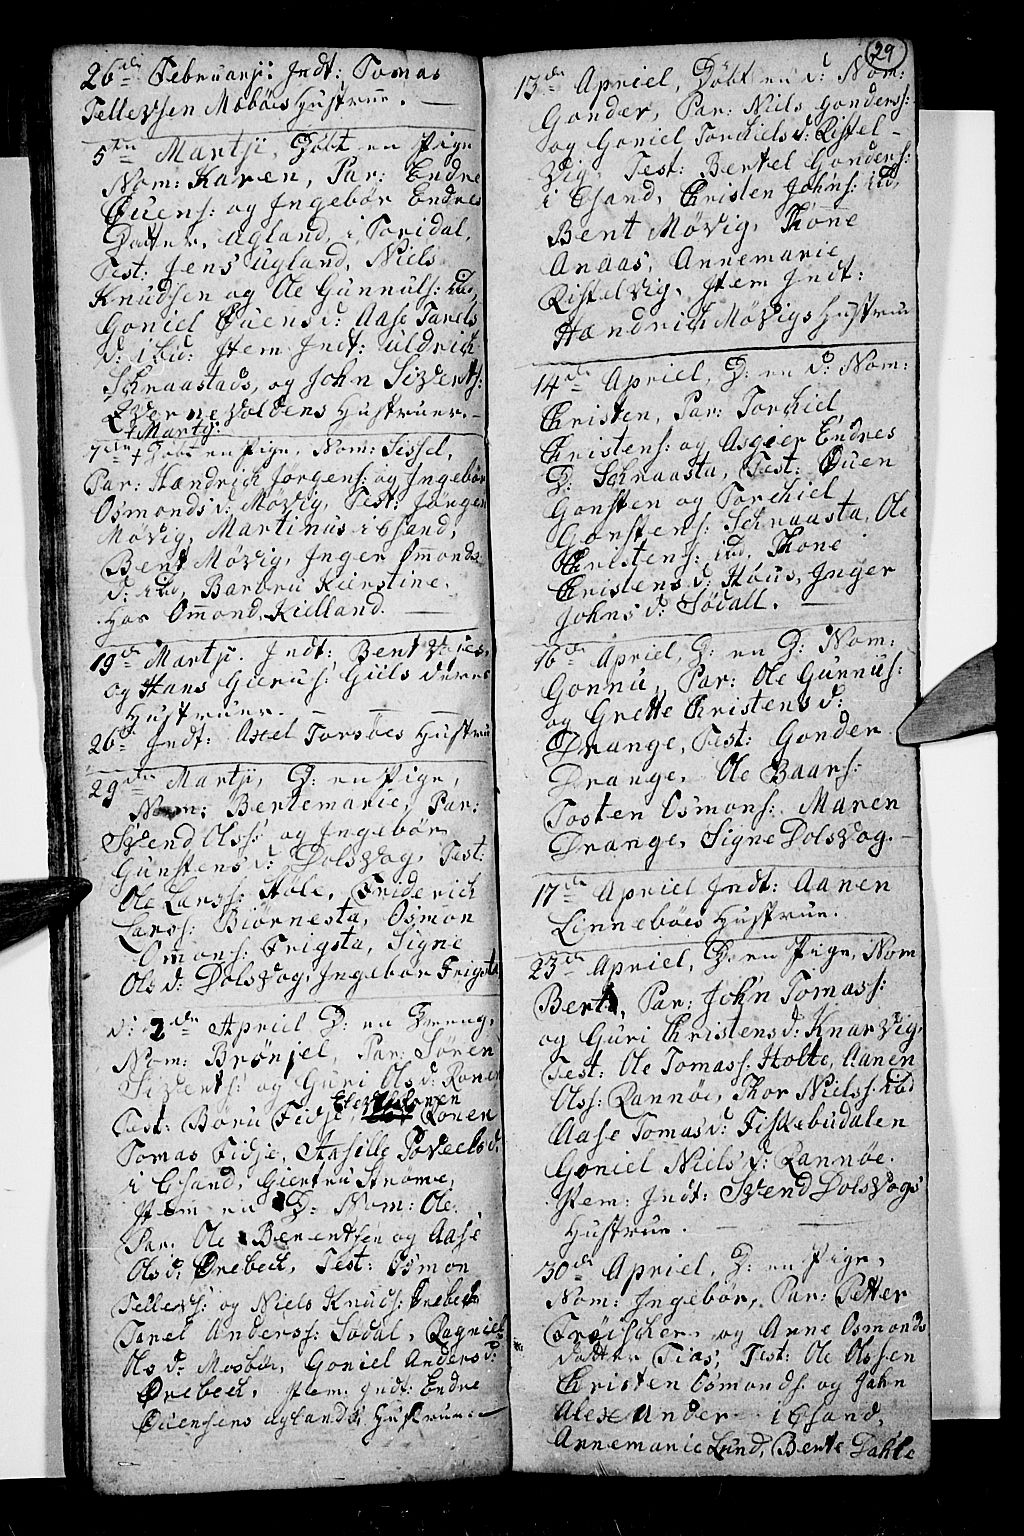 26de Februarji. Indt: Tomas
Tellevsen Moböes Hustrue.
5te Martji, Döbt en Pige
Nom: Karen, Par: Endre
Ouens: og Ingebör Endres
Datter, Ugland i Toridal,
Test: Jens Ugland, Niels
Knudsen og Ole Gunnuls: ibid,
Goniel Ouens d: Aase Tarels
d: ibid: Item Indt: Uldrich
Schraastads, og John Sizverts:
Qvernevoldens Hustruer.
Martji:
7de Döbt en Pige, Nom: Sissel,
Par: Hændrich Jörgens: og Ingebör
Osmonds d: Mövig, Test: Jörgen
Mövig, Martinus i Csand,
Bent Mövig, Inger Omonds
d: ibid, Barbru Kirstine
Hos Omond Kielland.
19de Martji. Indt: Bent
og Hans Hustruer.
26de Indt: Axel Torsöes Hustrue
29de Martji, D: en Pige,
Nom: Bertemarie, Par:
Svend Olss: og Ingebör
Gunstens d: Dolsvog, Test:
Ole Larss: Stole, Friderich
Larss: Biörnesta, Osmon
Omons: Frigsta, Signe
Ols d: Dolsvog, Ingebor Frigsta
d: 2de Apriil D: en Dreng,
Nom: Brönjel, Par: Sören
Sizverts: og Guri Ols d: Ronen
Test: Böru Fidje, Ronen
Tomas Fidje, Povels d:
i Csand, Giertru Strøme,
Item en D: Nom: Ole,
Par: Ole Berentsen og Aase
Ols d: Ørebeck, Test: Osmon
Tellevs: og Niels Knuds: Ørebeck
Tarel Anderss: Södal, Ragniel
Ols d: Mosböe, Goniel Anders d:
Ørebeck, Item: Indt: Endre
Ouensens Uglands, Hustrue.
29
13de Apriel, Döbt en d: Nom:
Gonder, Par: Niels Gonderss:
og Goniel Torkiels d: Ristel-
vig, Test: Bertel Gonders:
i Csand, Christen Johns: ibid,
Bent Mövig, Thone
Anaas, Annemarie
Ristelvig, Item Indt:
Hændrich Mövigs Hustrue
14de Apriel, D: en d: Nom:
Christen, Par: Torchiel
Christens: og Asgier Endres
D: Schraasta, Test: Ouen
Gonsten og Torchiel
Gonstens: Schraasta, Ole
Christens: ibid, Thone
Christens d: Höus, Inger
Johns d: Södall.
16de Apriel, D: en D: Nom:
Gonnu, Par: Ole Gunnus:
og Grette Christens d:
Drange, Test: Gonder
Drange, Ole Baars:
Tosten Osmons: Maren
Drange, Signe Dolsvog.
17de Apriel Indt: Aanen
Linneböes Hustrue.
23de Apriel, D: en Pige, Nom
Bert, Par: John Tomass:
og Guri Christens d: Knarvig.
Test: Ole Tomass: Holte, Aanen
Olss: Rannöe, Thor Nielss: ibid
Aase Tomas d: Fiskebudalen
Goniel Niels d: Rannøe.
Item: Indt: Svend Dolsvogs
Hustrue.
30de Apriel, D: en Pige,
Nom: Ingebör, Par: Petter
Fröischer og Anne Osmonds
datter Tias, Test: Ole Olssen
Christen Osmonds: og John
Alexander i Csand,
Annemarie Lund, Bente Dahle